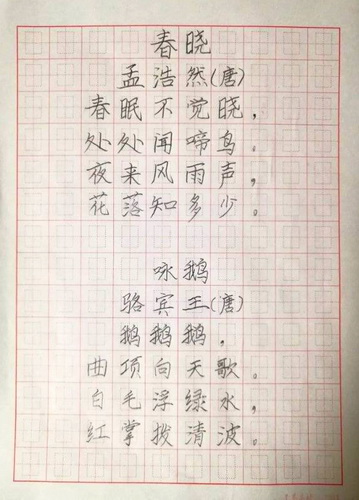 春晓
孟浩然(唐)
春眠不觉晓,
处处闻啼鸟。
夜来风雨声,
花落知多少。
咏鹅
骆宾王(唐)
鹅鹅鹅,
曲项向天歌。
白毛浮绿水,
红掌拨清波。